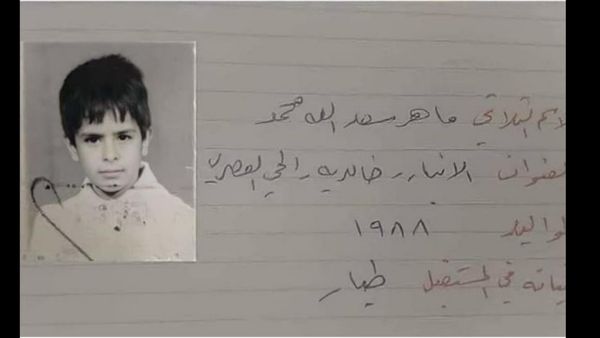 لاسم الثلاثي ماهر سعد الله محمد
لعنوان الانبار خالدية الحي العصري
لمواليد ١٩٨٨
نياته في المستقبل طيار